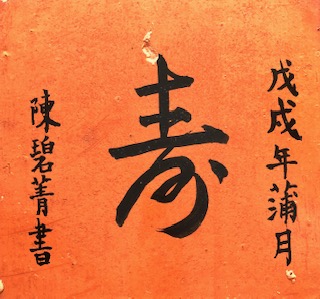 戊戌年蒲月
寿
陳碧菁書